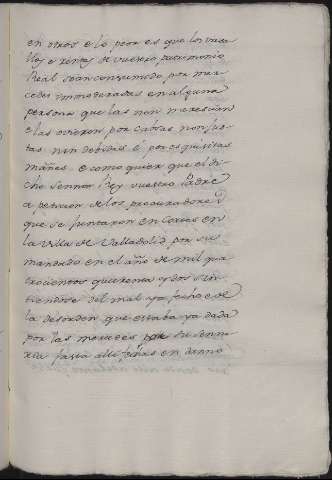 en otros e lo peor es que los vasa
llos e rentas de vuestro patrimonio
Real sean consumido, por mer
cedes inmoderadas en alguna
persona que las non merescian
e las ovieron, por causas non jus
tas nin debidas é por esquisitas
mañas. e como quier que el di
cho sennor Rey vuestro Padre
a peticion de los procuradores
que se juntaron en Cortes en
la villa de Valladolid por su
mandado en el año de mil qua
trocientos quarenta y dos sin
tiendose del mal ya fecho e de
la desorden que estaba ya dada
por las mercedes por su senno
ria fasta alli fechas en danno